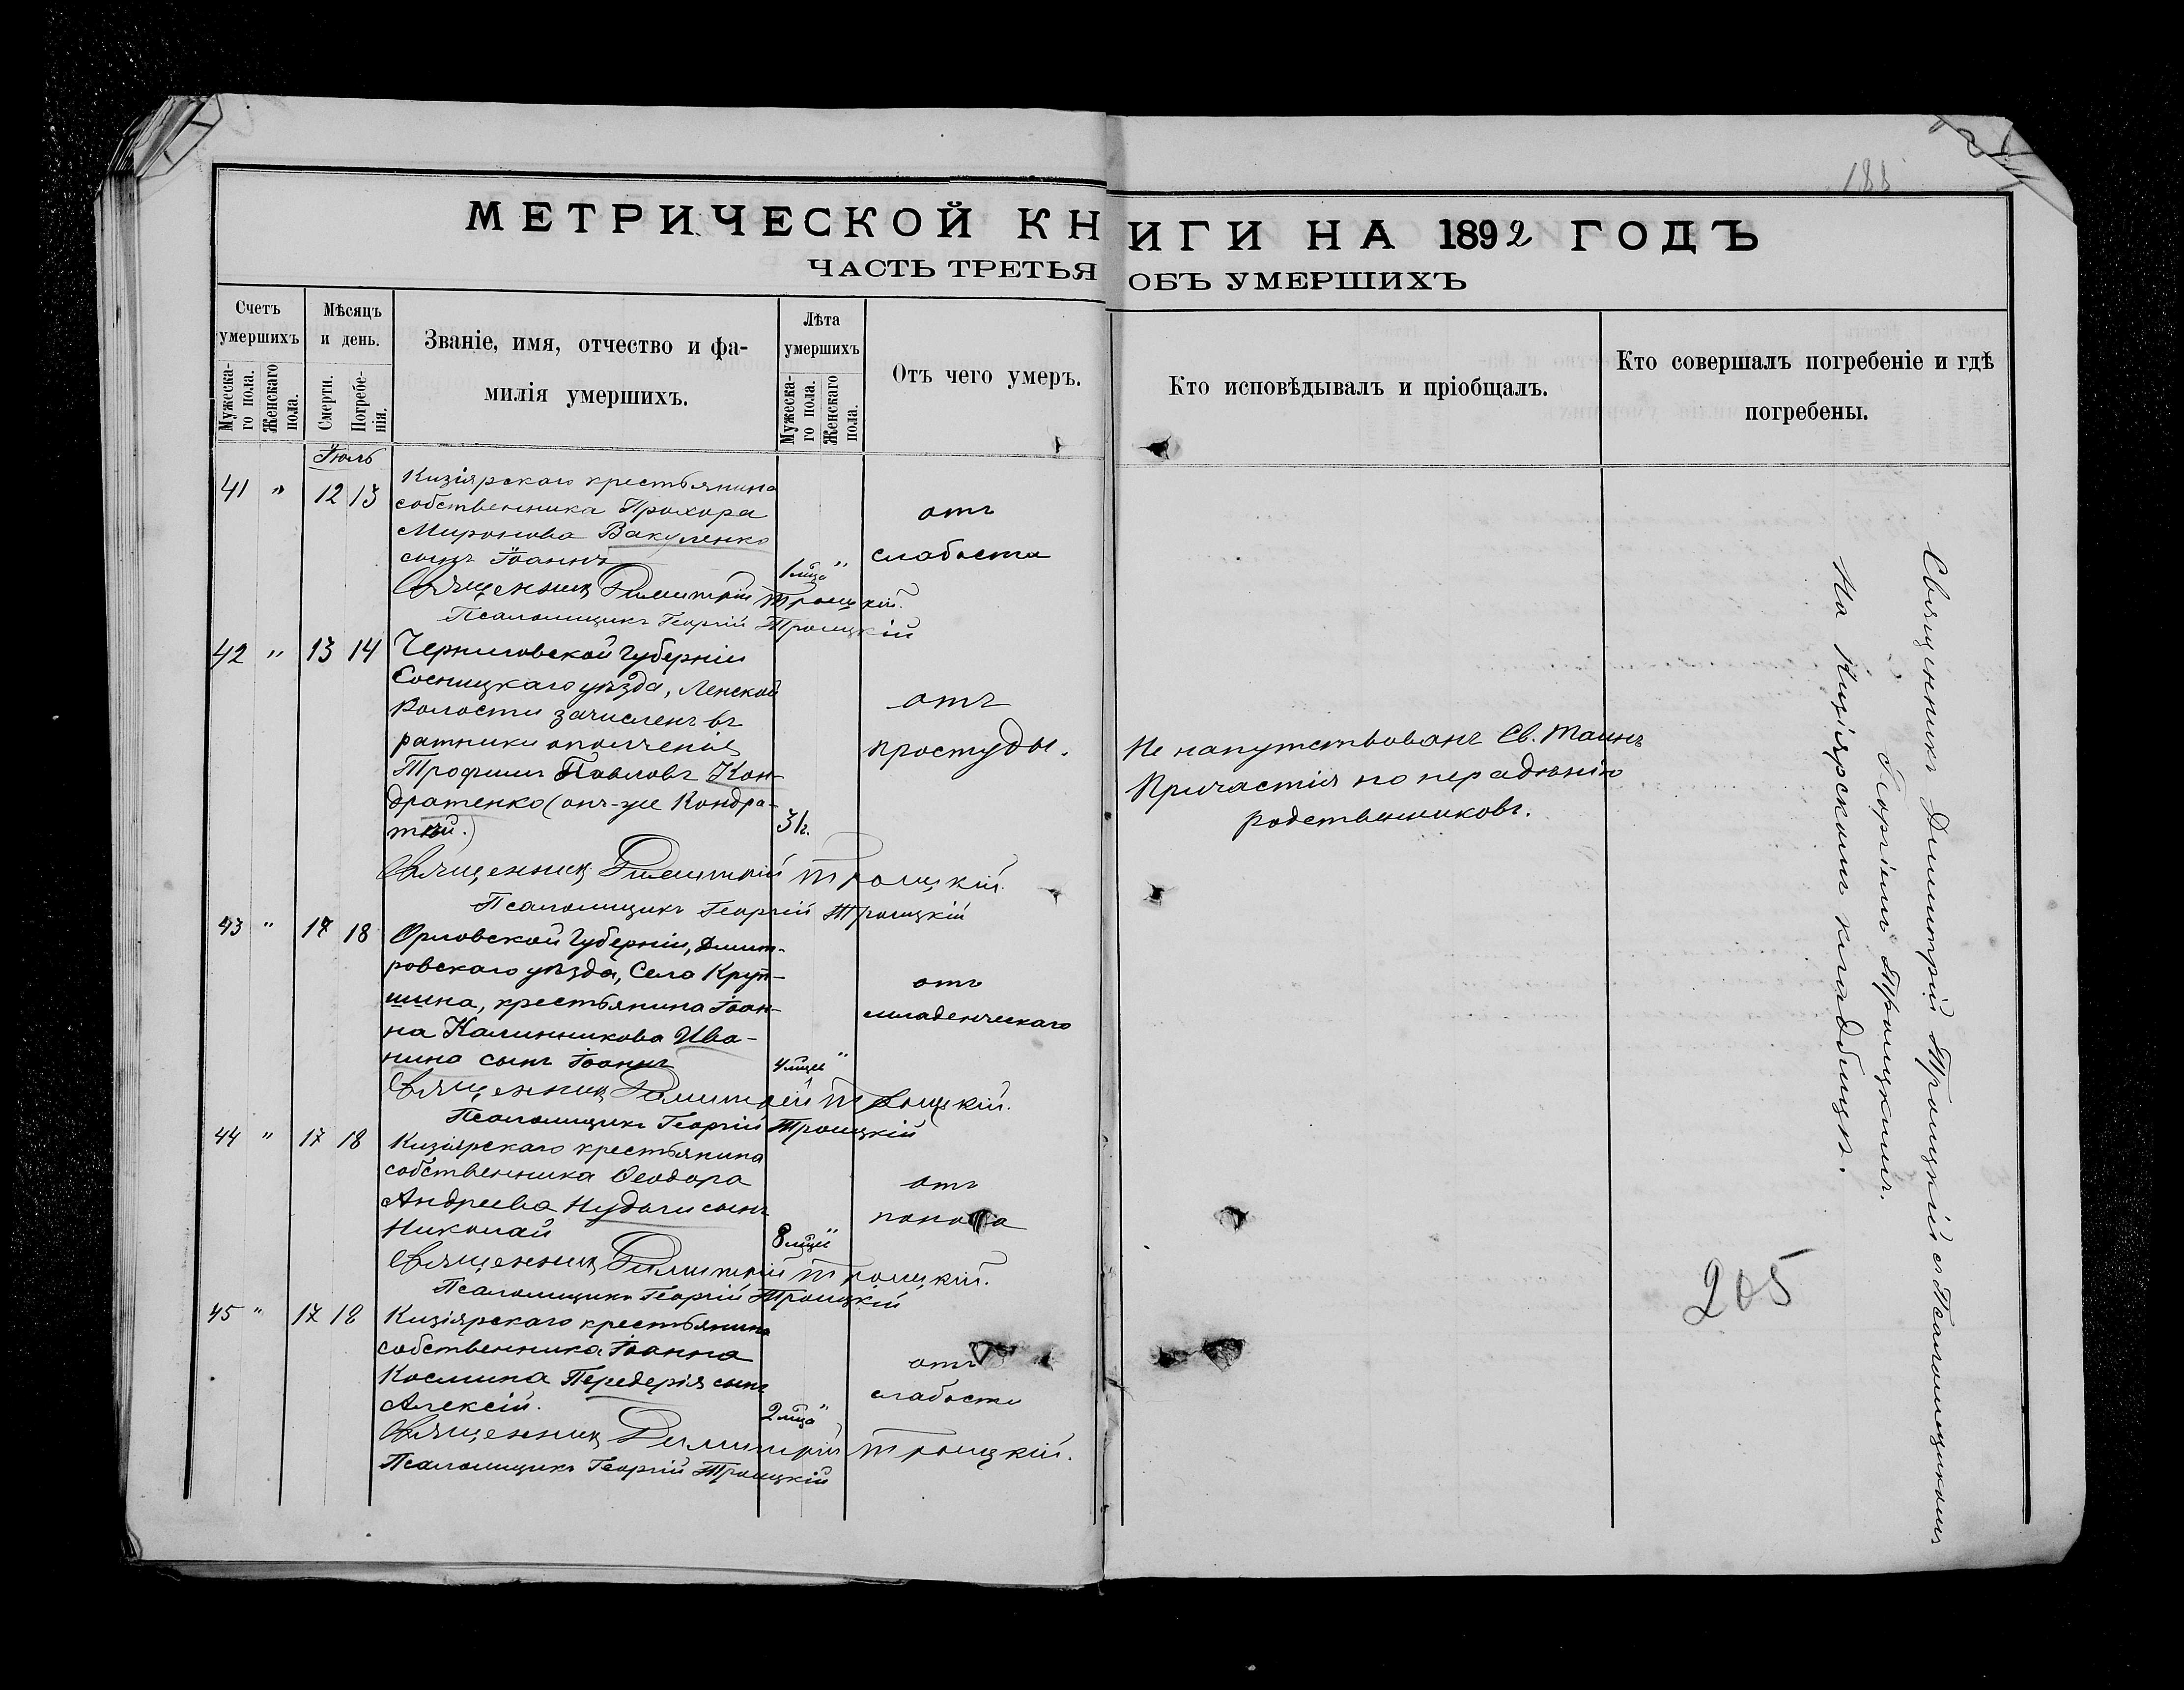 188
МЕТРИЧЕСКОЙ КНИГИ НА 1892 ГОДЪ
ЧАСТЬ ТРЕТЬЯ ОБЪ УМЕРШИХЪ
Счетъ умершихъ
Мужеска-
го пола.
Женскаго
пола.
Мѣсяцъ
и день.
Смерти.
Погребе-
нія.
Званіе, имя, отчество и фа-
милія умершихъ.
Лѣта
умершихъ
Мужеска-
го пола.
Женскаго
пола.
Отъ чего умеръ.
Кто исповѣдывалъ и пріобщалъ.
Кто совершалъ погребеніе и гдѣ
погребены.
Іюль
41 " 12 13
Кизіярскаго крестьянина
собственника Прохора
Миронова Вакуленко
сынъ Іоаннъ
1 мѣса "
отъ
слабости
Священникъ Димитрій Троицкій.
Псаломщикъ Георгій Троицкій
42 " 13 14
Черниговской Губерніи
Сосницкаго уѣзда, Менской
Волости зачисленъ въ
ратники ополченія
Трофимъ Павловъ Кон-
дратенко (онъ-же Кондра-
тій.)
31 г.
отъ
простуды.
Не напутствованъ Св. Таинъ
Причастія по нерадѣнію
родственниковъ.
Священникъ Димитрій Троицкій.
Псаломщикъ Георгій Троицкій
43 " 17 18
Орловской Губерніи, Дмит-
ровскаго уѣзда, Села Круп-
шина, крестьянина Іоан-
на Калинникова Ива-
нина сынъ Іоаннъ
4 мѣсе "
отъ
младенческаго
Священникъ Димитрій Троицкій.
Псаломщикъ Георгій Троицкій
44 " 17 18
Кизіярскаго крестьянина
собственника Ѳеодора
Андреева Нудьги сынъ
Николай
8 мѣсе "
отъ
поноса
Священникъ Димитрій Троицкій.
Псаломщикъ Георгій Троицкій
45 " 17 18
Кизіярскаго крестьянина
собственника Іоанна
Космина Передерія сынъ
Алексій.
2 мѣса "
отъ
слабости
Священникъ Димитрій Троицкій.
Псаломщикъ Георгій Троицкій
Священникъ Димитрій Троицкій съ Псаломщикомъ
Георгіемъ Троицкимъ.
На Кизіярскомъ кладбищѣ.
205